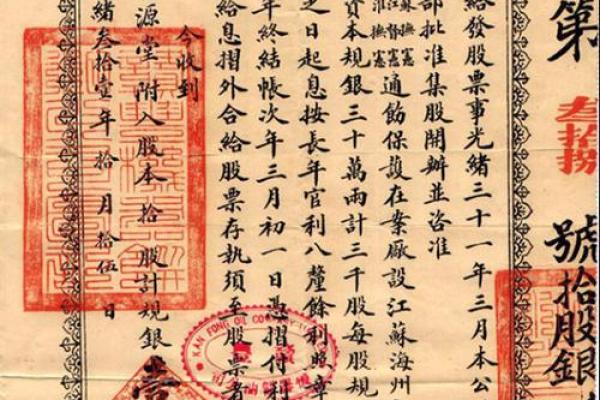 第叁拾捌號拾股銀
給發股票事光緒三十一年三月本公
部批准集股開辦並咨准
蘇撫憲
江督憲
淮撫憲
通飭保護在案廠設江蘇海州
資本規銀三十萬兩計三千股每股規
之日起息按長年官利八釐餘利照章
年終結帳次年三月初一日憑摺付利
給息摺外合給股票存執須至股票者
今收到
源堂附入股本拾股計規銀壹
緒叁拾壹年拾月拾伍日
KAN FONG OIL COMPANY